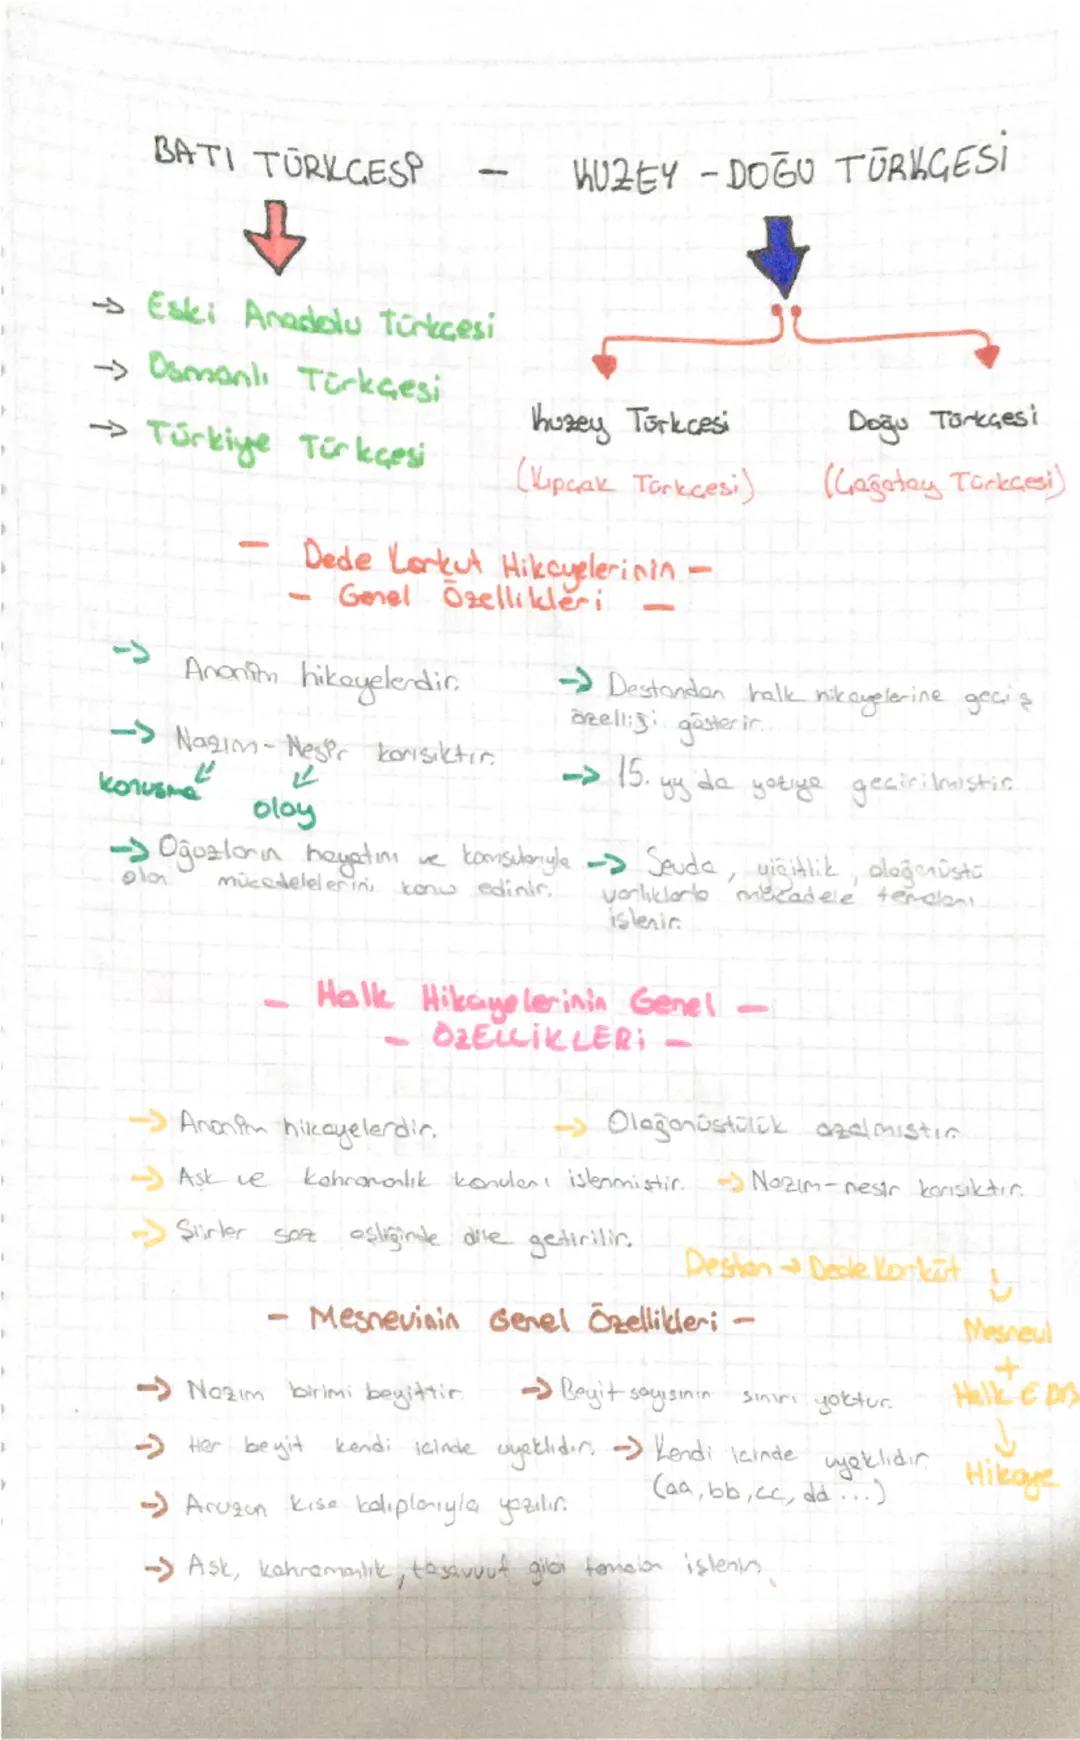 BATI TÜRKÇESİ - KUZEY - DOĞU TÜRKÇESİ
→ Eski Anadolu Türkçesi
→ Osmanlı Türkçesi
→ Türkiye Türkçesi
Kuzey Türkçesi
(Kıpçak Türkçesi)
Doğu Türkçesi
(Çağatay Türkçesi)
- Dede Korkut Hikayelerinin -
- Genel Özellikleri -
→ Anonim hikayelerdir.
→ Nazım - Nesir karışıktır.
konuşma
olay
→ Oğuzların hayatını ve komşularıyla
olan mücadelelerini konu edinir.
→ Destandan halk hikayelerine geçiş
özelliği gösterir.
→ 15. yy'da yazıya geçirilmiştir.
→ Sevda, yiğitlik, olağanüstü
varlıklarla mücadele temaları
işlenir.
- Halk Hikayelerinin Genel -
- ÖZELLİKLERİ -
→ Anonim hikayelerdir.
→ Olağanüstülük azalmıştır.
→ Aşk ve kahramanlık konuları işlenmiştir.
→ Nazım-nesir karışıktır.
→ Şiirler saz eşliğinde dile getirilir.
Destan → Dede Korkut
↓
Mesnevi
+
Halk
↓
Hikaye
- Mesnevinin Genel Özellikleri -
→ Nazım birimi beyittir.
→ Beyit sayısının sınırı yoktur.
→ Her beyit kendi içinde uyaklıdır.
→ Kendi içinde uyaklıdır.
(aa, bb, cc, dd ...)
→ Aruzun kısa kalıplarıyla yazılır.
→ Aşk, kahramanlık, tasavvuf gibi temalar işlenir.